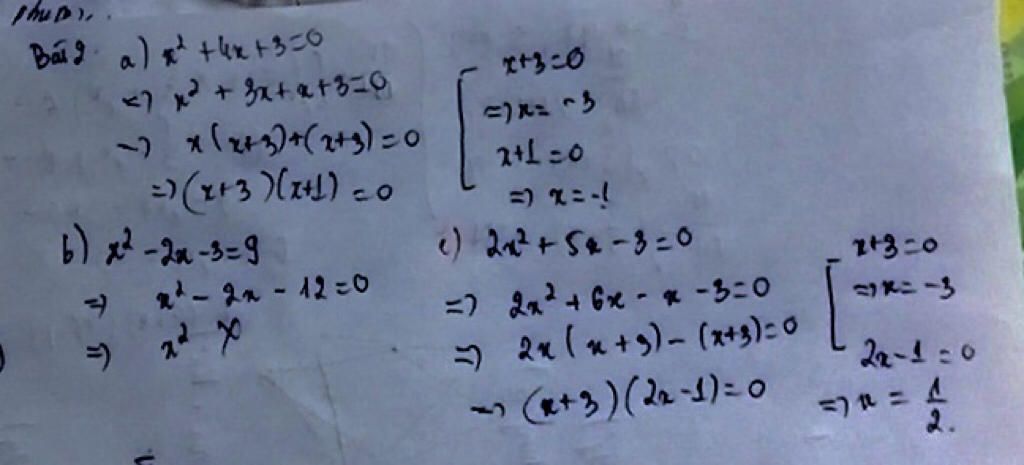 Bài 2 a) x² + 4x + 3 = 0
=> x² + 3x + x + 3 = 0
=> x(x+3)+(x+3) = 0
=> (x+3)(x+1) = 0
[ x+3 = 0
=> x = -3
x+1 = 0
=> x = -1
b) x² - 2x - 3 = 9
=> x² - 2x - 12 = 0
=> x²
c) 2x² + 5x - 3 = 0
=> 2x² + 6x - x - 3 = 0
=> 2x(x+3) - (x+3) = 0
=> (x+3)(2x-1) = 0
[ x+3 = 0
=> x = -3
2x-1 = 0
=> x = 1/2.